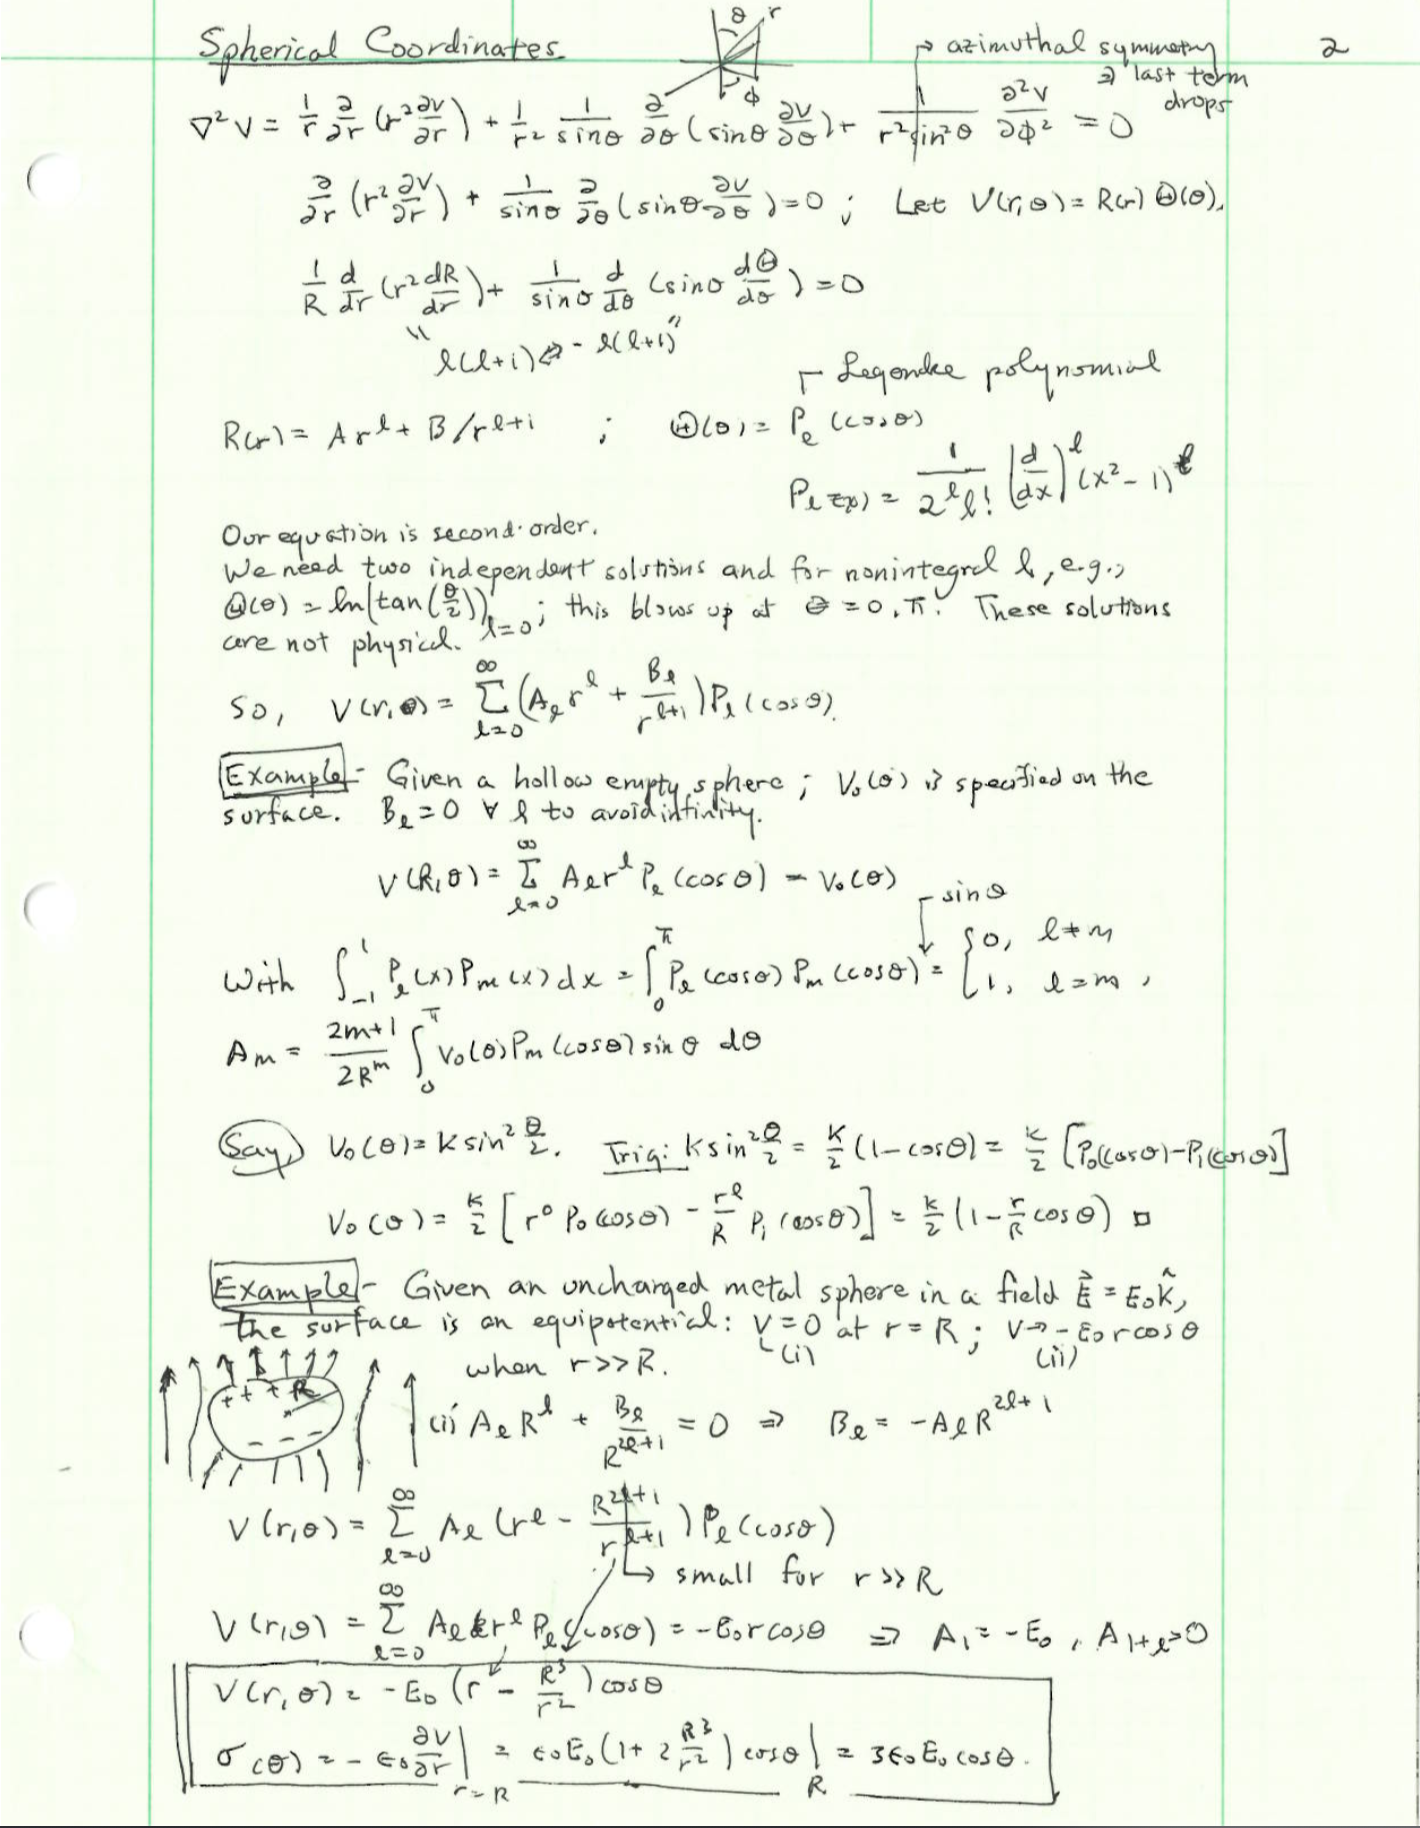 Spherical Coordinates
θ r
ϕ
→ azimuthal symmetry
⇒ last term
drops
2
∇²V = 1/r ∂/∂r (r² ∂V/∂r) + 1/r² 1/sinθ ∂/∂θ (sinθ ∂V/∂θ) + 1/(r² sin²θ) ∂²V/∂ϕ² = 0
∂/∂r (r² ∂V/∂r) + 1/sinθ ∂/∂θ (sinθ ∂V/∂θ) = 0 ; Let V(r,θ) = R(r) Θ(θ).
1/R d/dr (r² dR/dr) + 1/sinθ d/dθ (sinθ dΘ/dθ) = 0
"l(l+1) ⇔ - l(l+1)"
Legendre polynomial
R(r) = A r^l + B/r^l+1 ; Θ(θ) = P_l (cosθ)
P_l(x) = 1/(2^l l!) (d/dx)^l (x² - 1)^l
Our equation is second-order.
We need two independent solutions and for nonintegral l, e.g.,
Θ(θ) = ln(tan(θ/2)) l=0; this blows up at θ = 0, π. These solutions
are not physical.
So, V(r,θ) = Σ_{l=0}^∞ (A_l r^l + B_l/r^{l+1}) P_l (cosθ).
Example - Given a hollow empty sphere ; V₀(θ) is specified on the
surface. B_l = 0 ∀ l to avoid infinity.
V(R,θ) = Σ_{l=0}^∞ A_l r^l P_l (cosθ) = V₀(θ)
sinθ
With ∫_{-1}^{1} P_l(x) P_m(x) dx = ∫_0^π P_l (cosθ) P_m (cosθ) = { 0, l≠m
1, l=m ,
A_m = (2m+1)/(2R^m) ∫_0^π V₀(θ) P_m (cosθ) sinθ dθ
Say, V₀(θ) = k sin² θ/2. Trig: k sin² θ/2 = k/2 (1 - cosθ) = k/2 [P₀(cosθ) - P₁(cosθ)]
V₀(θ) = k/2 [r⁰ P₀(cosθ) - r^l/R P₁(cosθ)] = k/2 (1 - r/R cosθ) □
Example - Given an uncharged metal sphere in a field E⃗ = E₀k̂,
the surface is an equipotential: V = 0 at r = R ; V → -E₀ r cosθ
(i) (ii)
when r >> R.
+ + + R
- - - -
(i) A_l R^l + B_l/R^{2l+1} = 0 ⇒ B_l = -A_l R^{2l+1}
V(r,θ) = Σ_{l=0}^∞ A_l (r^l - R^{2l+1}/r^{l+1}) P_l (cosθ)
↳ small for r >> R
V(r,θ) = Σ_{l=0}^∞ A_l r^l P_l (cosθ) = -E₀ r cosθ ⇒ A₁ = -E₀ , A_{1+l} = 0
V(r,θ) = -E₀ (r - R³/r²) cosθ
σ(θ) = -ε₀ ∂V/∂r |_{r=R} = ε₀E₀ (1 + 2 R³/r²) cosθ |_R = 3ε₀E₀ cosθ.